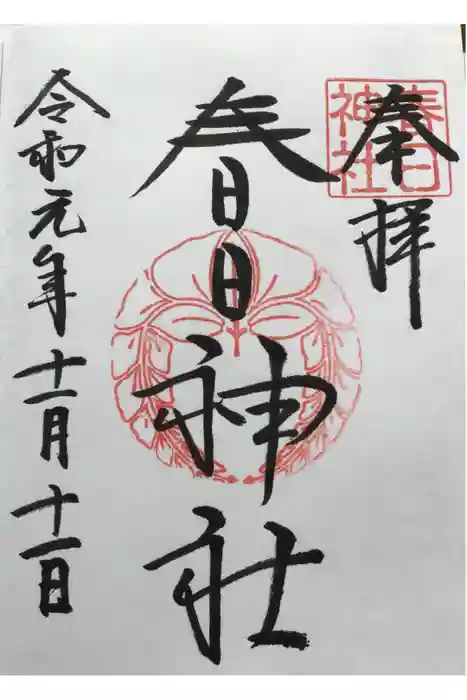 奉拝
春日
神社
春日神社
令和元年十一月十一日